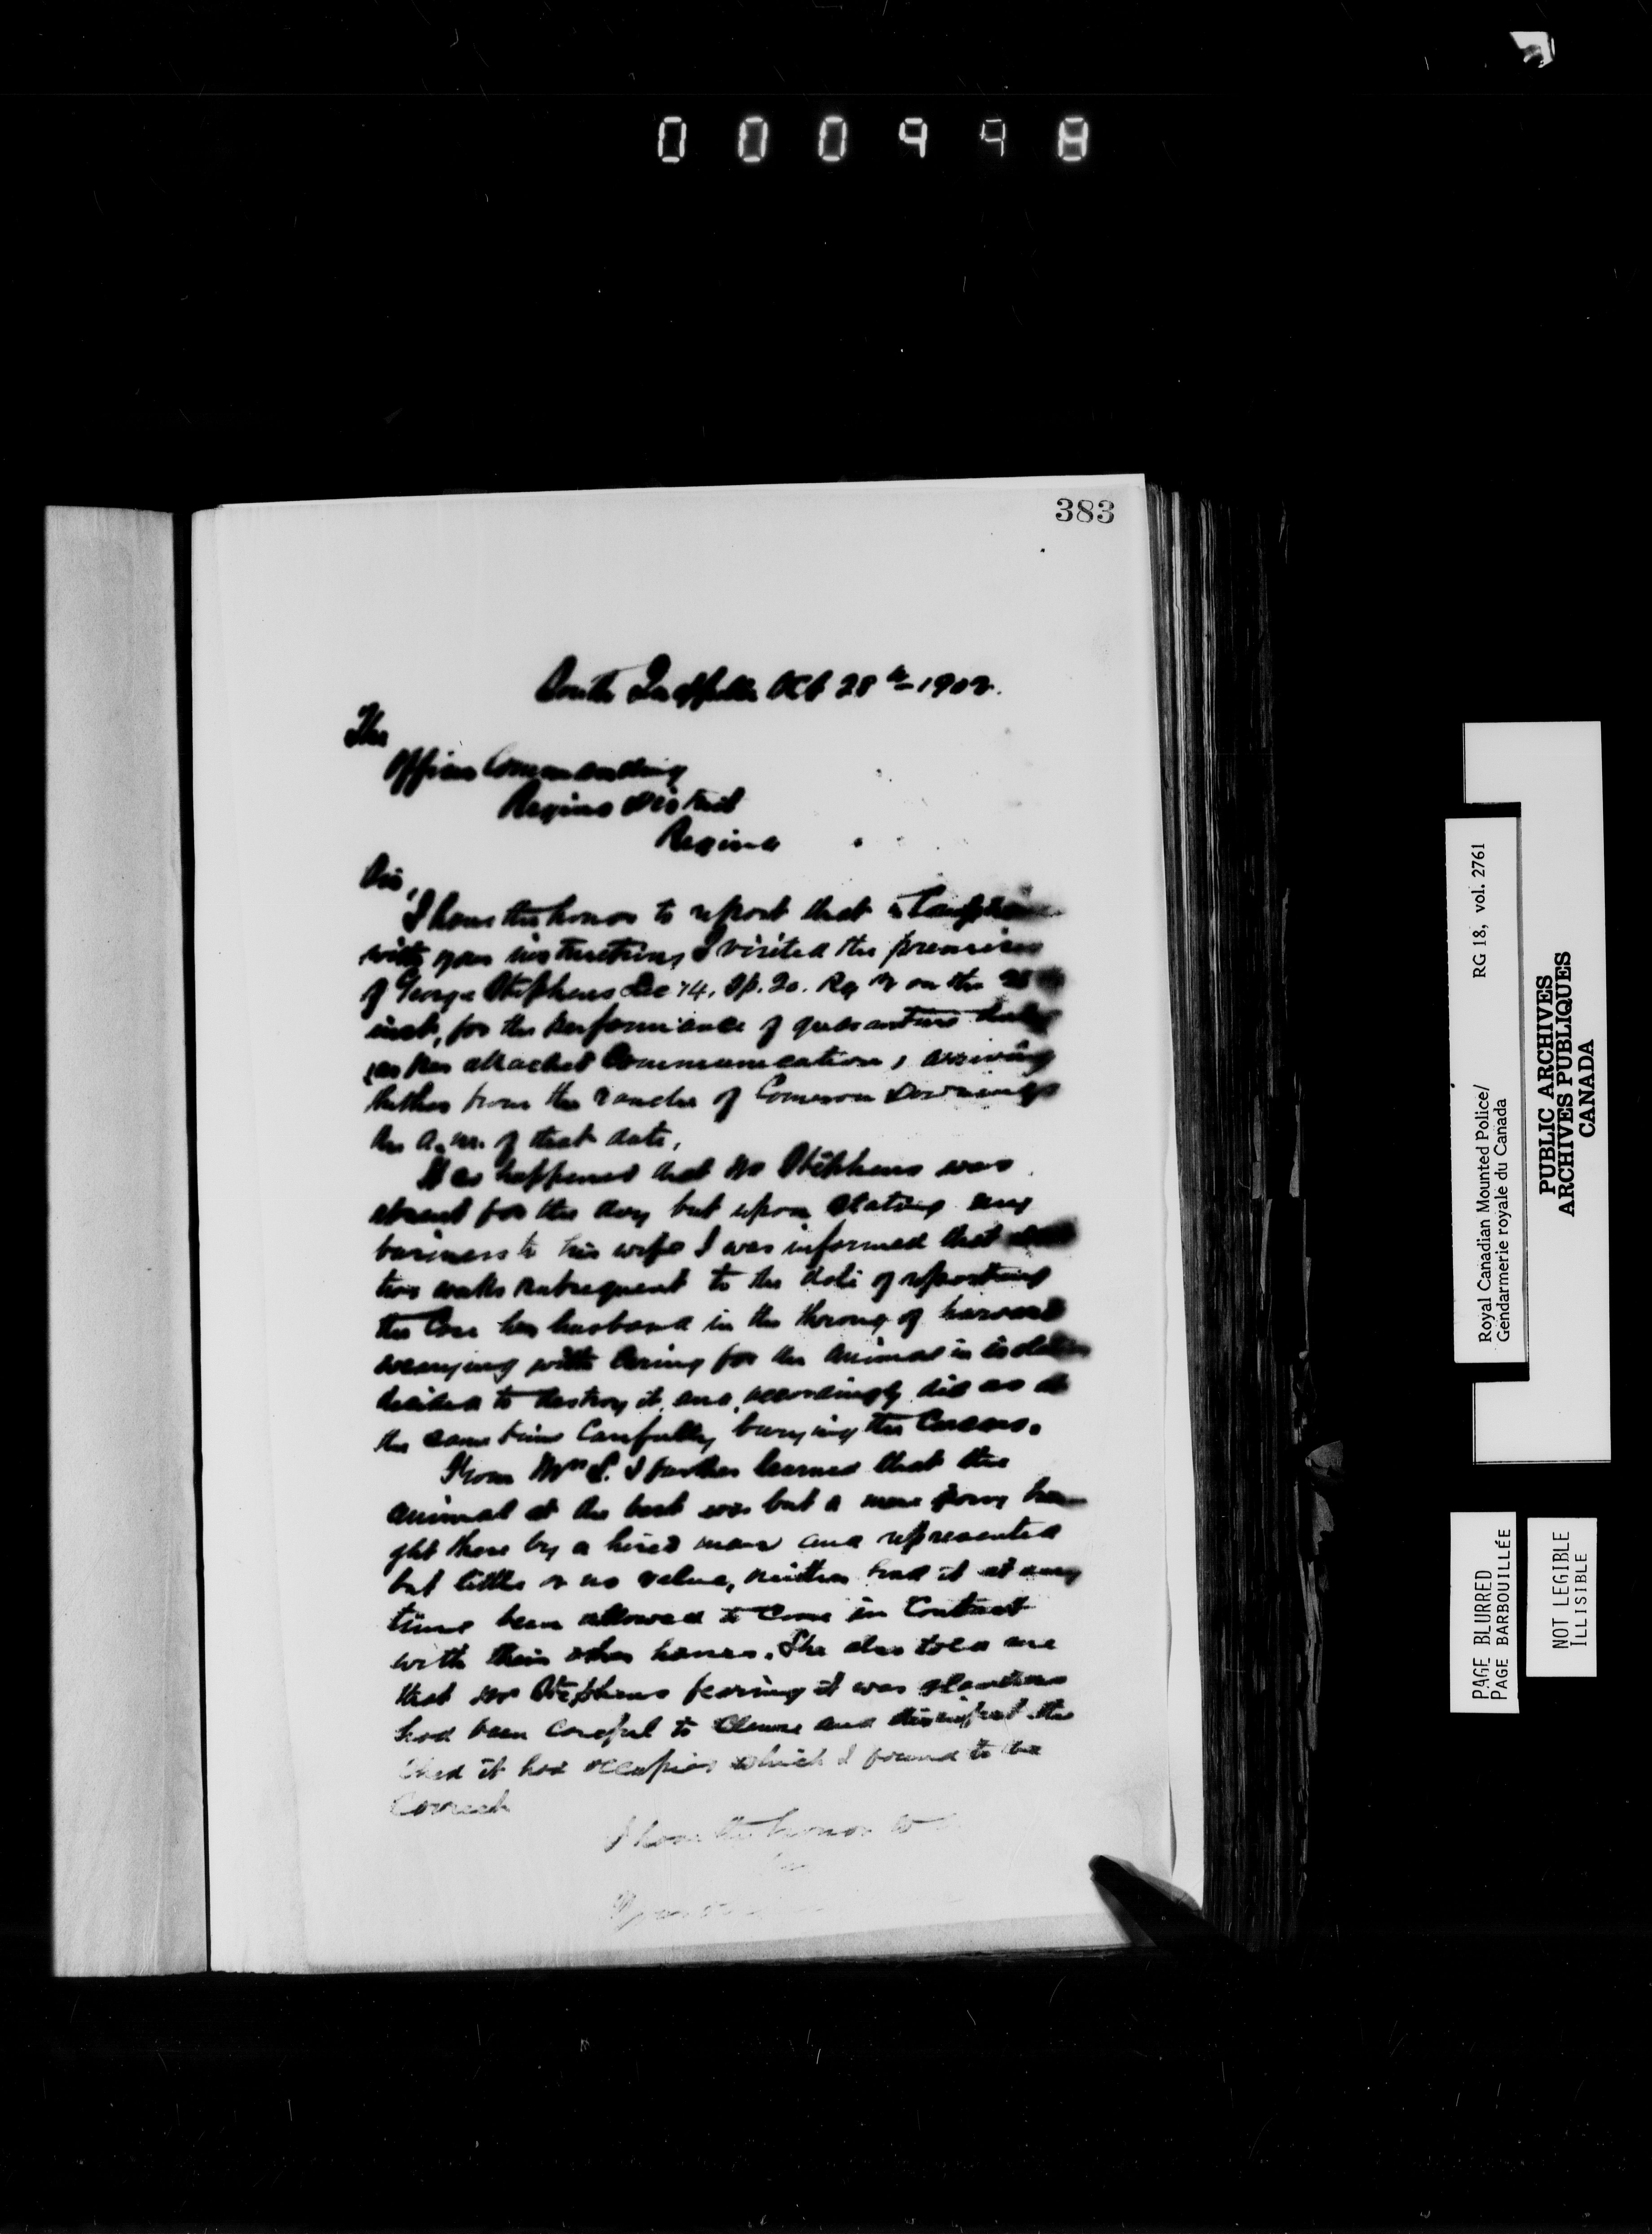 000998
383
South Qu'Appelle Oct 28th 1902.
The
Officer Commanding
Regina District
Regina
Sir,
I have the honor to report that in Compliance
with your instructions I visited the premises
of George Stephens Sec 14. Tp. 20. Rg on the
inst, for the performance of quarantine duty
as per attached Communication, arriving
thither from the ranche of Cameron
the a.m. of that date.
It so happened that Mr Stephens was
absent for the day but upon stating my
business to his wife I was informed that
two weeks subsequent to the date of reporting
the Case her husband in the throng of harvest
wearying with Caring for the animal in isolation
decided to destroy it and accordingly did so at
the same time Carefully burying the Carcass.
From Mrs S. I further learned that the
animal at the best was but a mere pony brou
ght there by a hired man and represented
but little or no value, neither had it at any
time been allowed to Come in Contact
with their other horses. She also told me
that Mr Stephens fearing it was glanders
had been Careful to Cleanse and disinfect the
Shed it had occupied which I found to be
Correct
I have the honor to
RG 18, vol. 2761
Royal Canadian Mounted Police/
Gendarmerie royale du Canada
PUBLIC ARCHIVES
ARCHIVES PUBLIQUES
CANADA
PAGE BLURRED
PAGE BARBOUILLÉE
NOT LEGIBLE
ILLISIBLE